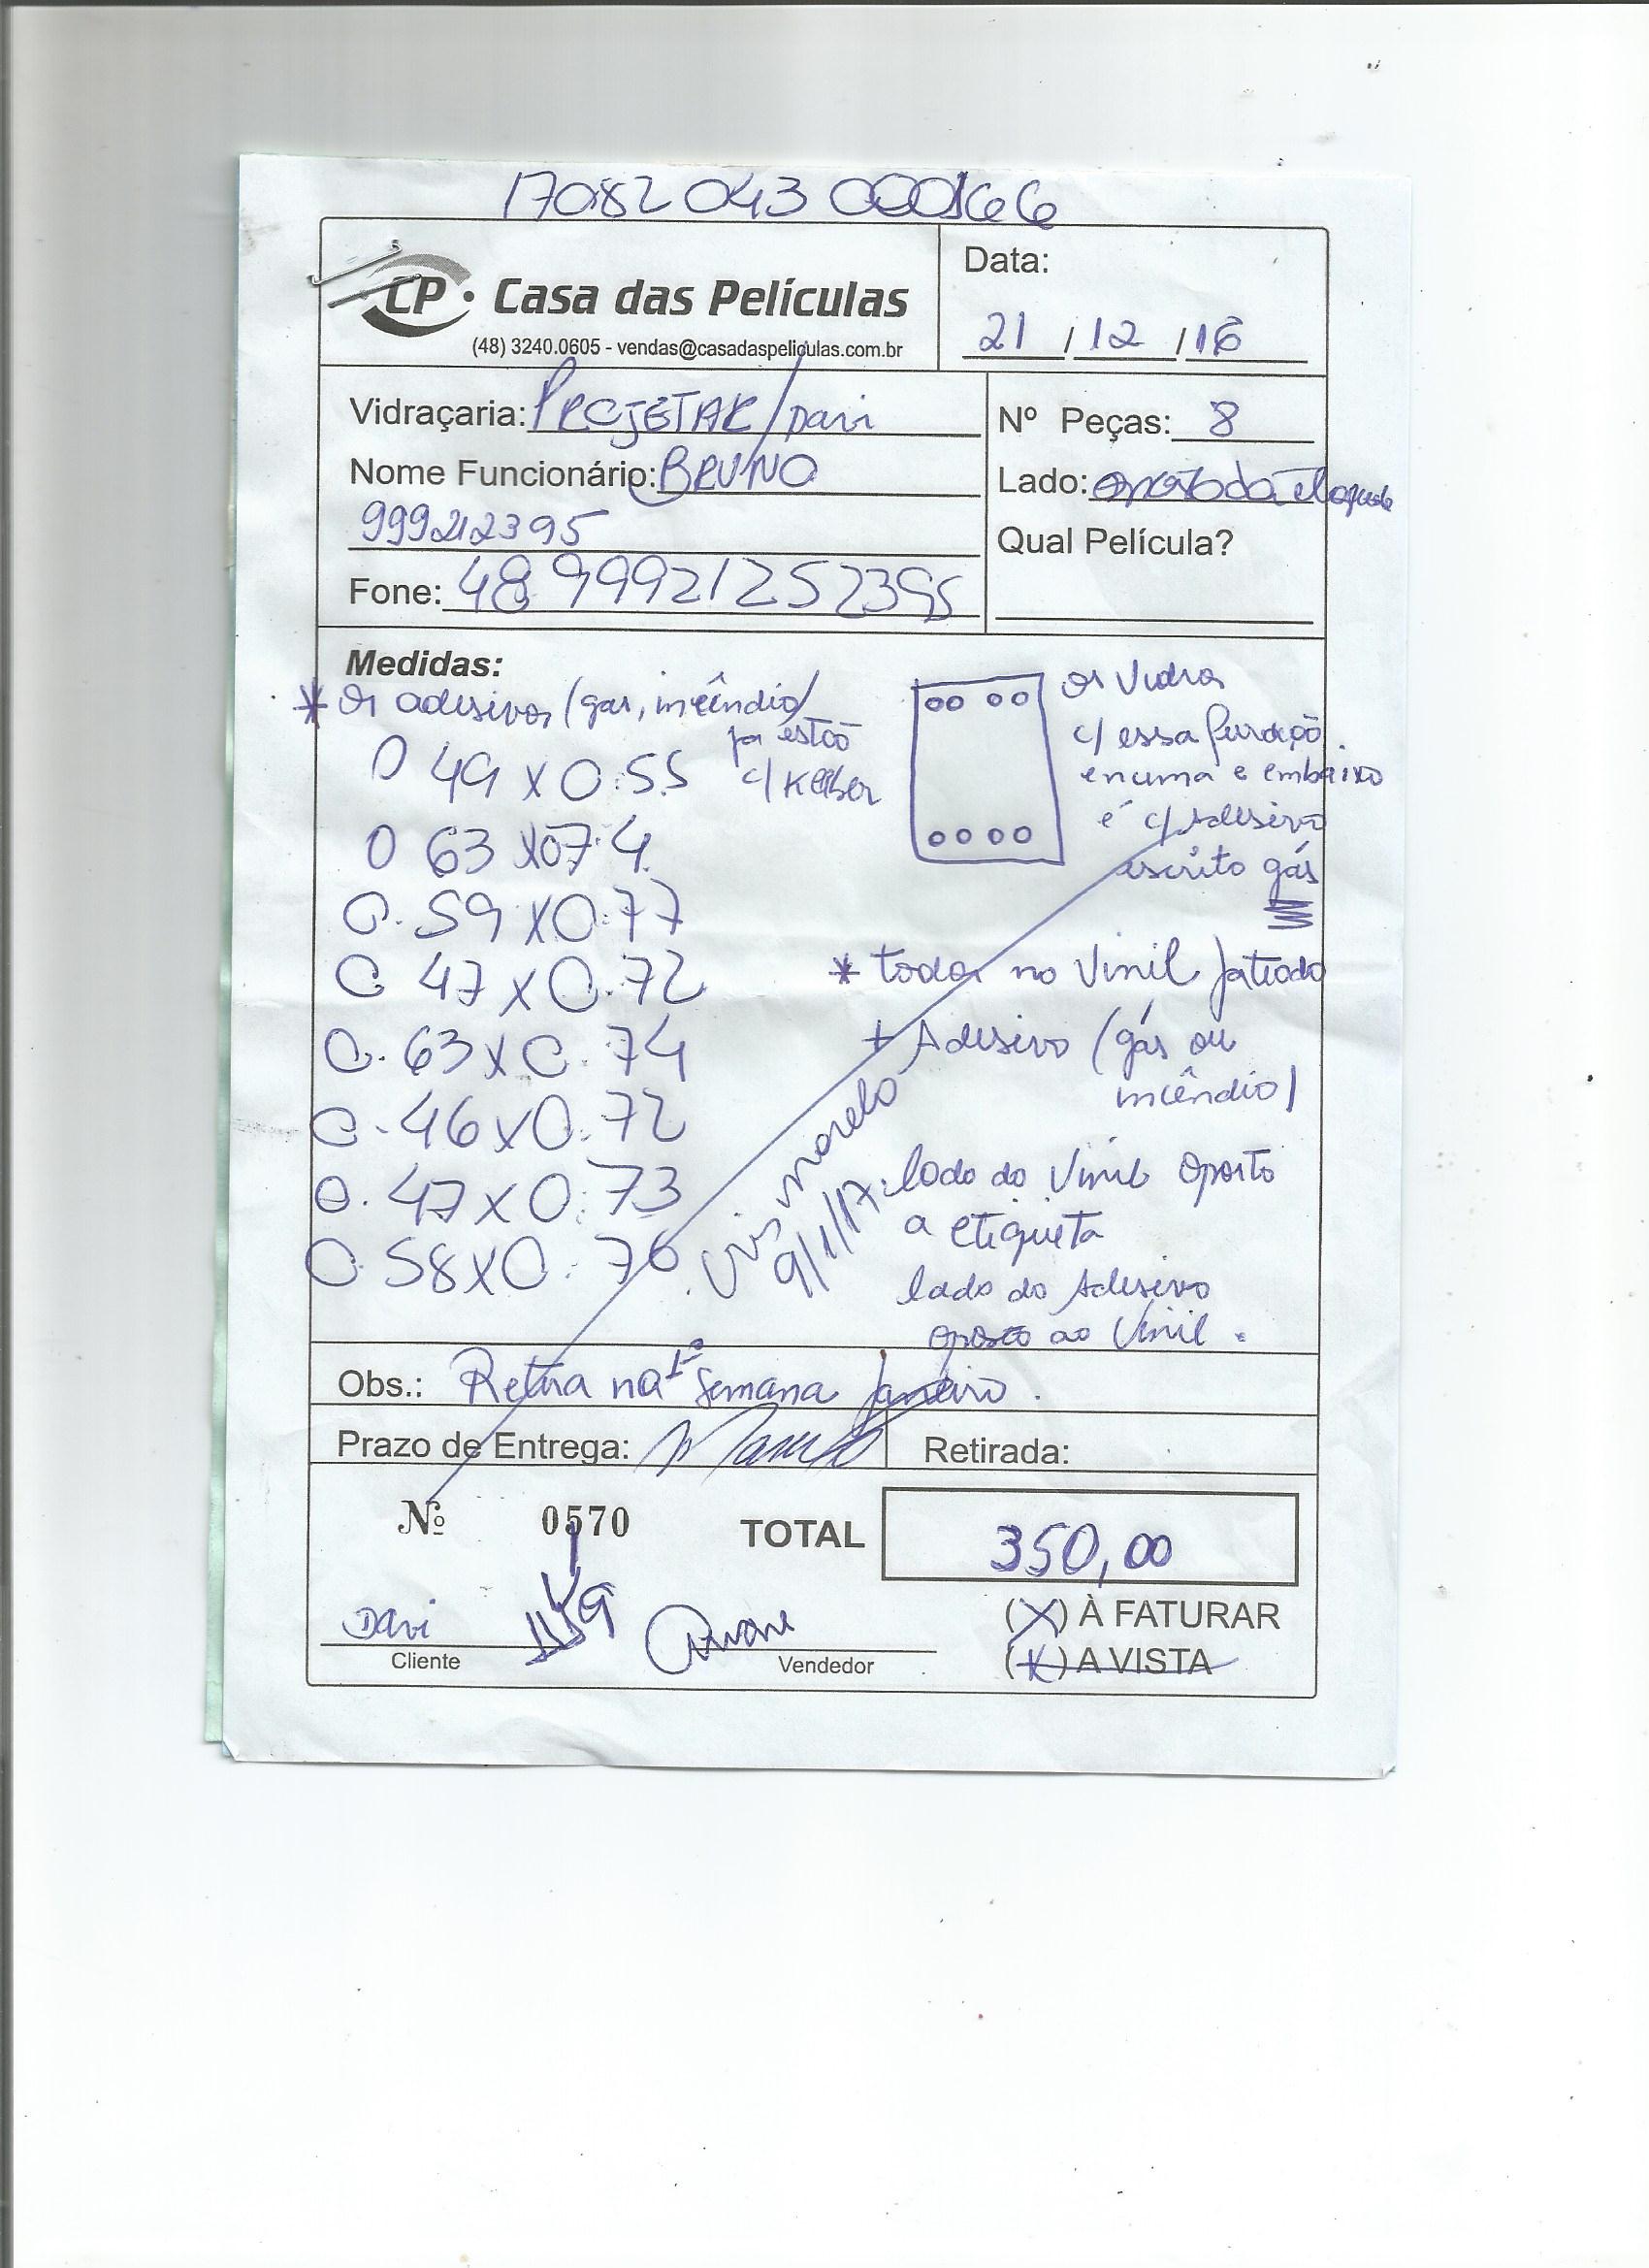 17082 043 0001 66
CP. Casa das Películas
(48) 3240.0605 - vendas@casadaspeliculas.com.br
Data:
21 / 12 / 16
Vidraçaria: PROJETAR / Davi
Nº Peças: 8
Nome Funcionário: BRUNO
Lado: oposto da etiqueta
999212395
Qual Película?
Fone: 48 99921252395
Medidas:
* Os adesivos (gas, incêndio)
já estão
c/ Kleber
0 49 x 0.55
0 63 x 07.4
0.59 x 0.77
0 47 x 0.72
0.63 x 0.74
0.46 x 0.72
0.47 x 0.73
0.58 x 0.76
os Vidros
c/ essa furação
encima e embaixo
é c/ Adesivo
escrito gás
* todos no Vinil jateado
+ Adesivo (gás ou
incêndio)
9/1/17
lado do Vinil oposto
a etiqueta
lado do Adesivo
oposto ao Vinil.
Obs.: Retira na 1ª semana Janeiro.
Prazo de Entrega:
Retirada:
Nº 0570
TOTAL 350,00
Davi
Cliente
Vendedor
(X) À FATURAR
(X) A VISTA